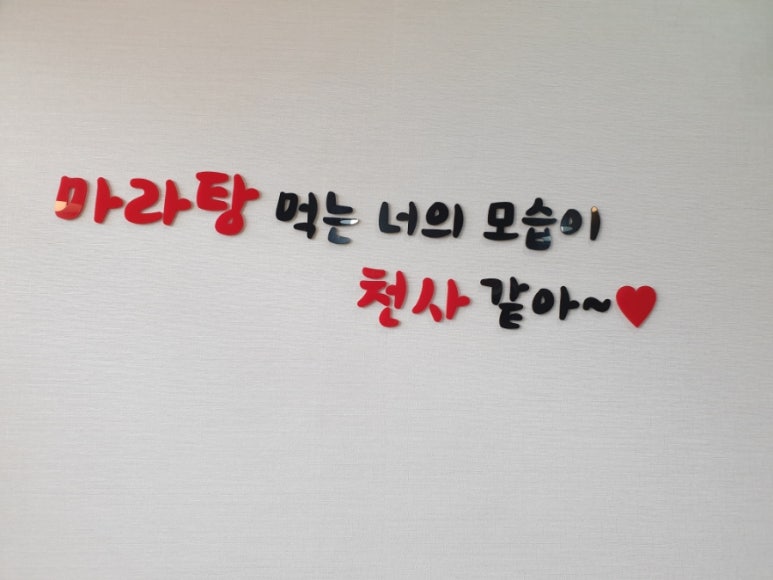 마라탕 먹는 너의 모습이
천사 같아~♥